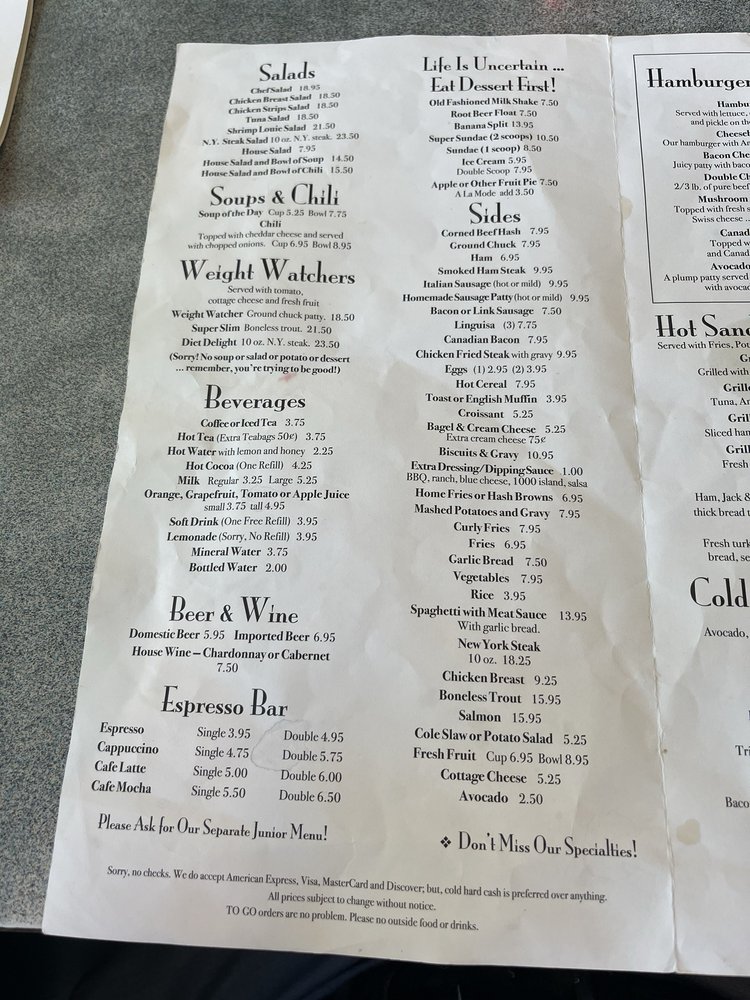 Salads
Chef Salad 18.95
Chicken Breast Salad 18.50
Chicken Strips Salad 18.50
Tuna Salad 18.50
Shrimp Louie Salad 21.50
N.Y. Steak Salad 10 oz. N.Y. steak. 23.50
House Salad 7.95
House Salad and Bowl of Soup 14.50
House Salad and Bowl of Chili 15.50
Soups & Chili
Soup of the Day Cup 5.25 Bowl 7.75
Chili
Topped with cheddar cheese and served
with chopped onions. Cup 6.95 Bowl 8.95
Weight Watchers
Served with tomato,
cottage cheese and fresh fruit
Weight Watcher Ground chuck patty. 18.50
Super Slim Boneless trout. 21.50
Diet Delight 10 oz. N.Y. steak. 23.50
(Sorry! No soup or salad or potato or dessert
... remember, you're trying to be good!)
Beverages
Coffee or Iced Tea 3.75
Hot Tea (Extra Teabags 50¢) 3.75
Hot Water with lemon and honey 2.25
Hot Cocoa (One Refill) 4.25
Milk Regular 3.25 Large 5.25
Orange, Grapefruit, Tomato or Apple Juice
small 3.75 tall 4.95
Soft Drink (One Free Refill) 3.95
Lemonade (Sorry, No Refill) 3.95
Mineral Water 3.75
Bottled Water 2.00
Beer & Wine
Domestic Beer 5.95 Imported Beer 6.95
House Wine – Chardonnay or Cabernet
7.50
Espresso Bar
Espresso Single 3.95 Double 4.95
Cappuccino Single 4.75 Double 5.75
Cafe Latte Single 5.00 Double 6.00
Cafe Mocha Single 5.50 Double 6.50
Please Ask for Our Separate Junior Menu!
Life Is Uncertain ...
Eat Dessert First!
Old Fashioned Milk Shake 7.50
Root Beer Float 7.50
Banana Split 13.95
Super Sundae (2 scoops) 10.50
Sundae (1 scoop) 8.50
Ice Cream 5.95
Double Scoop 7.95
Apple or Other Fruit Pie 7.50
A La Mode add 3.50
Sides
Corned Beef Hash 7.95
Ground Chuck 7.95
Ham 6.95
Smoked Ham Steak 9.95
Italian Sausage (hot or mild) 9.95
Homemade Sausage Patty (hot or mild) 9.95
Bacon or Link Sausage 7.50
Linguisa (3) 7.75
Canadian Bacon 7.95
Chicken Fried Steak with gravy 9.95
Eggs (1) 2.95 (2) 3.95
Hot Cereal 7.95
Toast or English Muffin 3.95
Croissant 5.25
Bagel & Cream Cheese 5.25
Extra cream cheese 75¢
Biscuits & Gravy 10.95
Extra Dressing/Dipping Sauce 1.00
BBQ, ranch, blue cheese, 1000 island, salsa
Home Fries or Hash Browns 6.95
Mashed Potatoes and Gravy 7.95
Curly Fries 7.95
Fries 6.95
Garlic Bread 7.50
Vegetables 7.95
Rice 3.95
Spaghetti with Meat Sauce 13.95
With garlic bread.
New York Steak
10 oz. 18.25
Chicken Breast 9.25
Boneless Trout 15.95
Salmon 15.95
Cole Slaw or Potato Salad 5.25
Fresh Fruit Cup 6.95 Bowl 8.95
Cottage Cheese 5.25
Avocado 2.50
❖ Don't Miss Our Specialties!
Sorry, no checks. We do accept American Express, Visa, MasterCard and Discover; but, cold hard cash is preferred over anything.
All prices subject to change without notice.
TO GO orders are no problem. Please no outside food or drinks.
Hamburger
Hambu
Served with lettuce,
and pickle on th
Cheese
Our hamburger with Am
Bacon Che
Juicy patty with baco
Double Ch
2/3 lb. of pure beef
Mushroom
Topped with fresh s
Swiss cheese ..
Canad
Topped w
and Canad
Avocado
A plump patty served
with avocad
Hot Sand
Served with Fries, Pot
Gr
Grilled with
Grille
Tuna, Am
Grill
Sliced ham
Grill
Fresh
Ham, Jack &
thick bread t
Fresh turk
bread, se
Cold
Avocado,
Tri
Baco